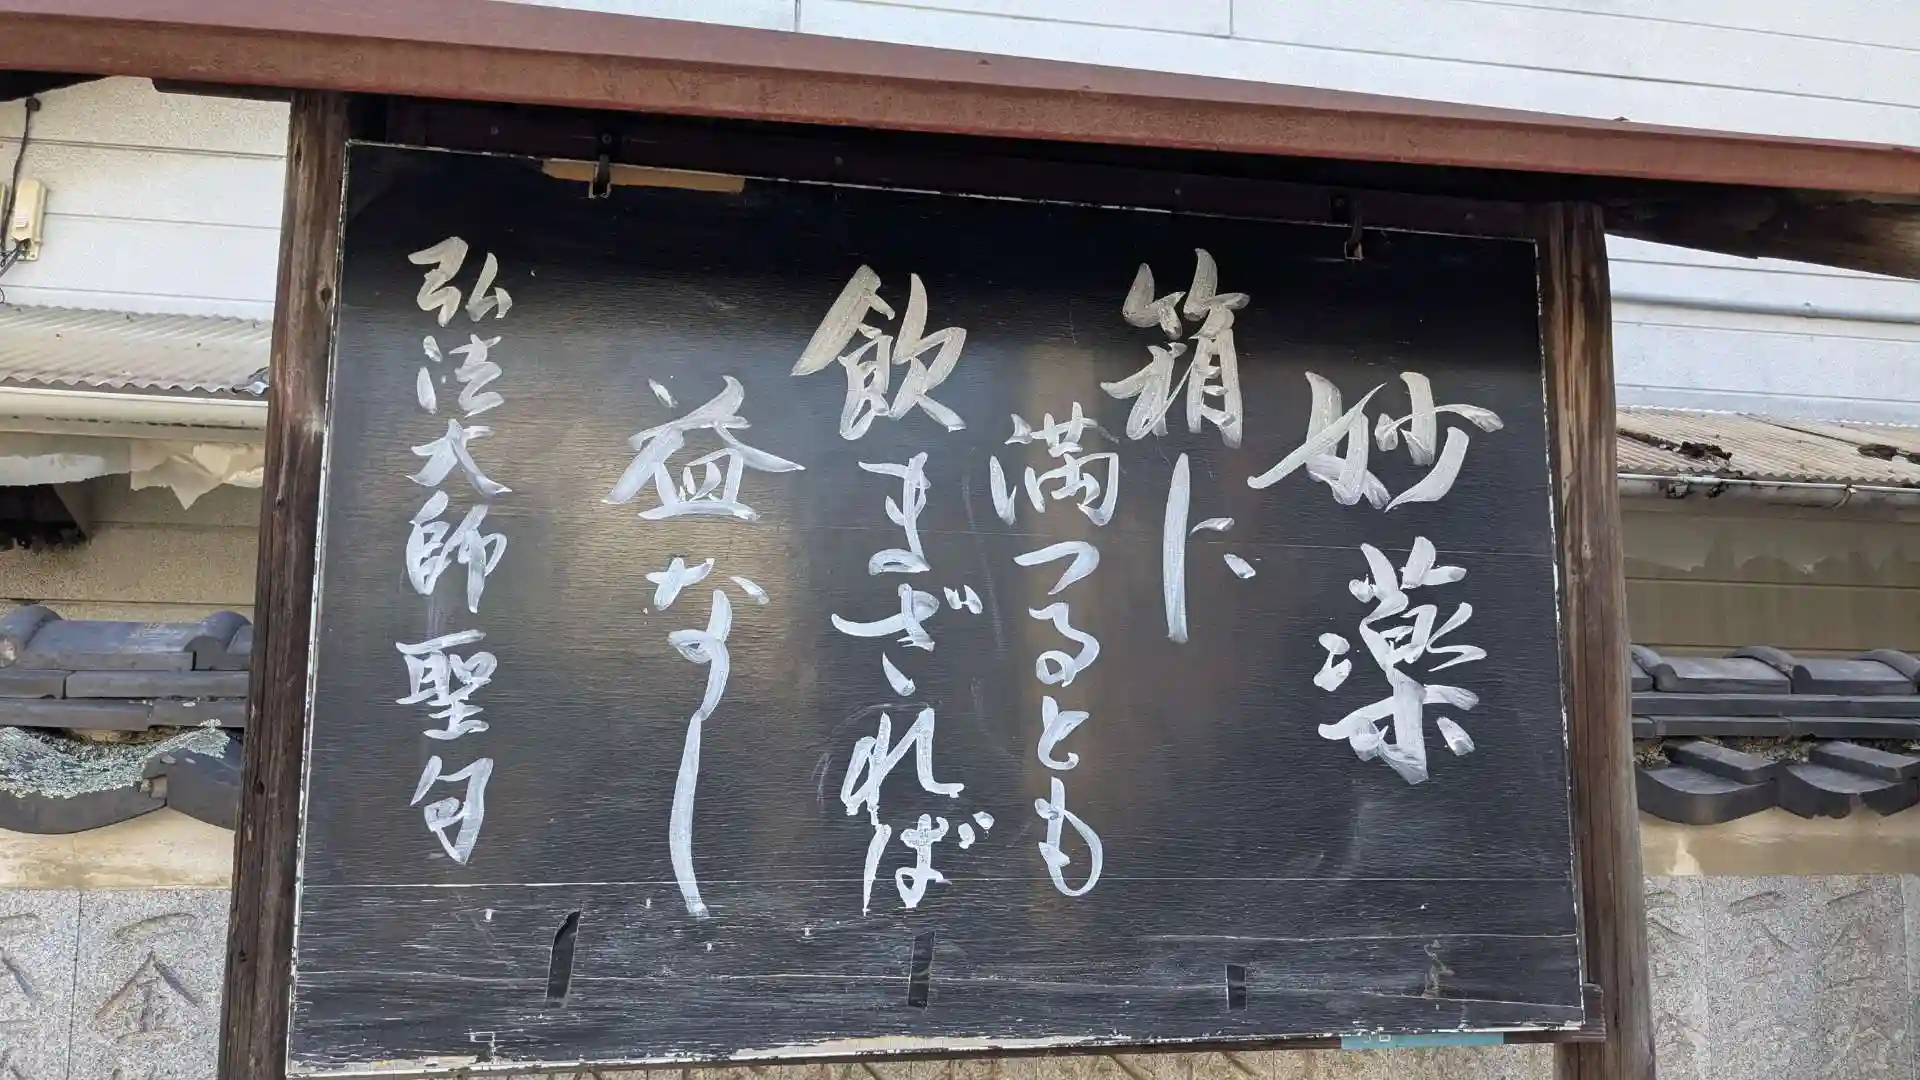 妙薬
箱に
満つるとも
飲まざれば
益なし
弘法大師聖句